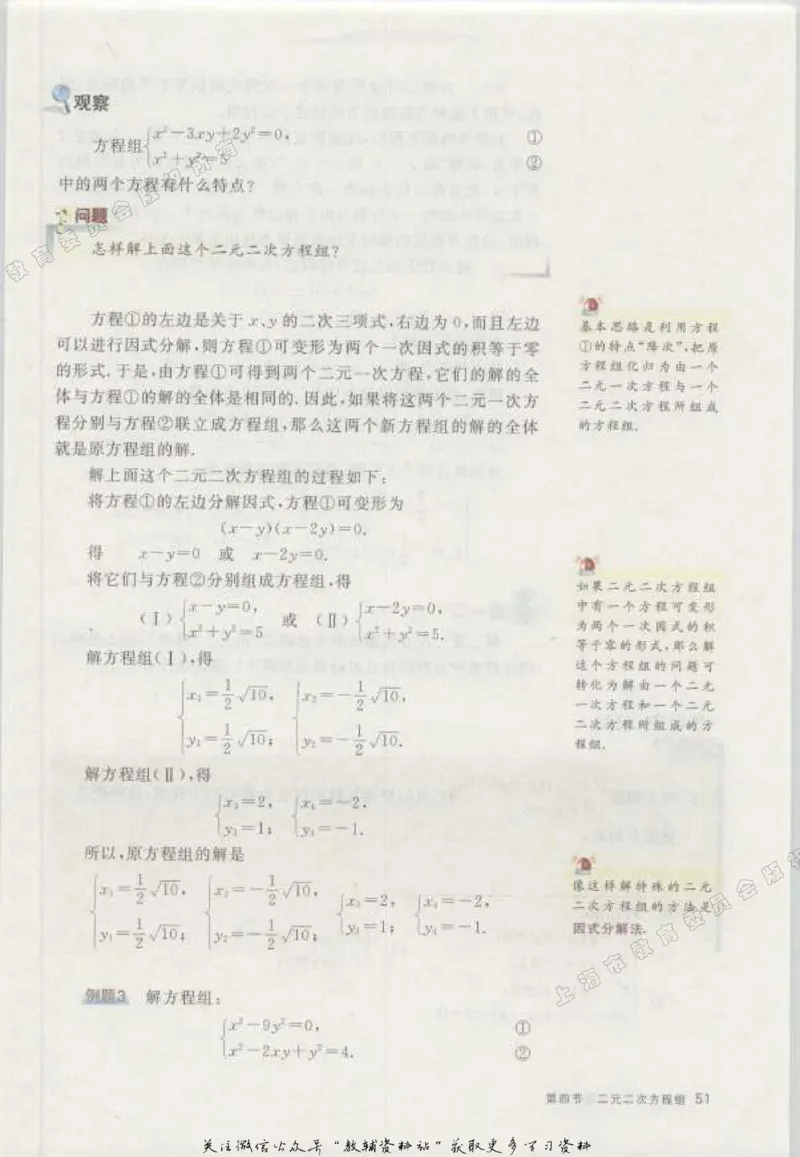 观察
方程组{x²－3xy＋2y²＝0， ①
x²＋y²＝5 ②
中的两个方程有什么特点？
问题
怎样解上面这个二元二次方程组？
方程①的左边是关于 x、y 的二次三项式，右边为 0，而且左边
可以进行因式分解，则方程①可变形为两个一次因式的积等于零
的形式．于是，由方程①可得到两个二元一次方程，它们的解的全
体与方程①的解的全体是相同的．因此，如果将这两个二元一次方
程分别与方程②联立成方程组，那么这两个新方程组的解的全体
就是原方程组的解．
解上面这个二元二次方程组的过程如下：
将方程①的左边分解因式，方程①可变形为
(x－y)(x－2y)＝0．
得 x－y＝0 或 x－2y＝0．
将它们与方程②分别组成方程组，得
（Ⅰ）{x－y＝0， 或 （Ⅱ）{x－2y＝0，
x²＋y²＝5 x²＋y²＝5．
解方程组（Ⅰ），得
{x₁＝1/2 √10， {x₂＝－1/2 √10，
y₁＝1/2 √10； y₂＝－1/2 √10．
解方程组（Ⅱ），得
{x₃＝2， {x₄＝－2，
y₃＝1； y₄＝－1．
所以，原方程组的解是
{x₁＝1/2 √10， {x₂＝－1/2 √10， {x₃＝2， {x₄＝－2，
y₁＝1/2 √10； y₂＝－1/2 √10； y₃＝1； y₄＝－1．
例题3 解方程组：
{x²－9y²＝0， ①
x²－2xy＋y²＝4． ②
基本思路是利用方程
①的特点“降次”，把原
方程组化归为由一个
二元一次方程与一个
二元二次方程所组成
的方程组．
如果二元二次方程组
中有一个方程可变形
为两个一次因式的积
等于零的形式，那么解
这个方程组的问题可
转化为解由一个二元
一次方程和一个二元
二次方程所组成的方
程组．
像这样解特殊的二元
二次方程组的方法是
因式分解法．
第四节 二元二次方程组 51
教育委员会版权所有
上海市教育委员会版权
关注微信公众号“教辅资料站”获取更多学习资料